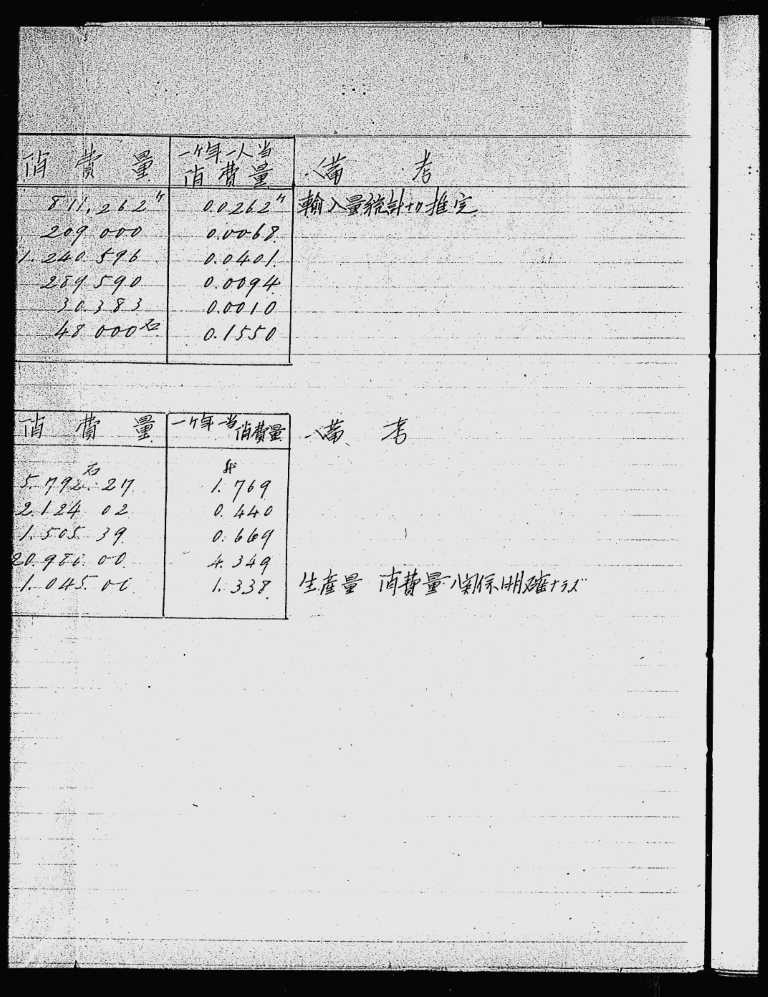 消費量 一ケ年一人当消費量 備考
811.262〃 0.0262〃 輸入量統計ヨリ推定
209.000 0.0068
1.240.596 0.0401
289.590 0.0094
30.383 0.0010
48.000石 0.1550
消費量 一ケ年当消費量 備考
石
5.792.27 1.769
2.124.02 0.440
1.505.39 0.669
20.98 .00 4.349
1.045.0 1.338 生産量 消費量ノ関係明確ナラズ